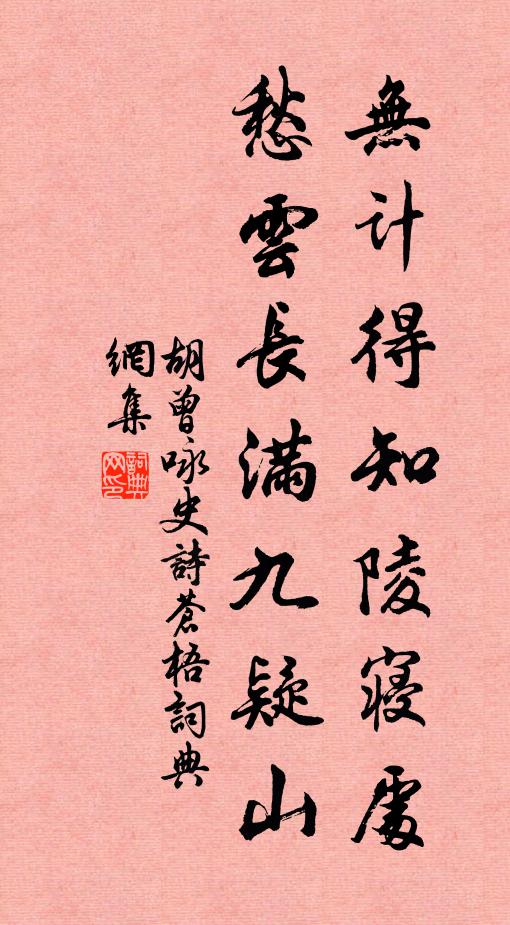 無計得知陵寢處
愁雲長滿九疑山
胡曾咏史詩蒼梧詞典
網集
詞典
网印